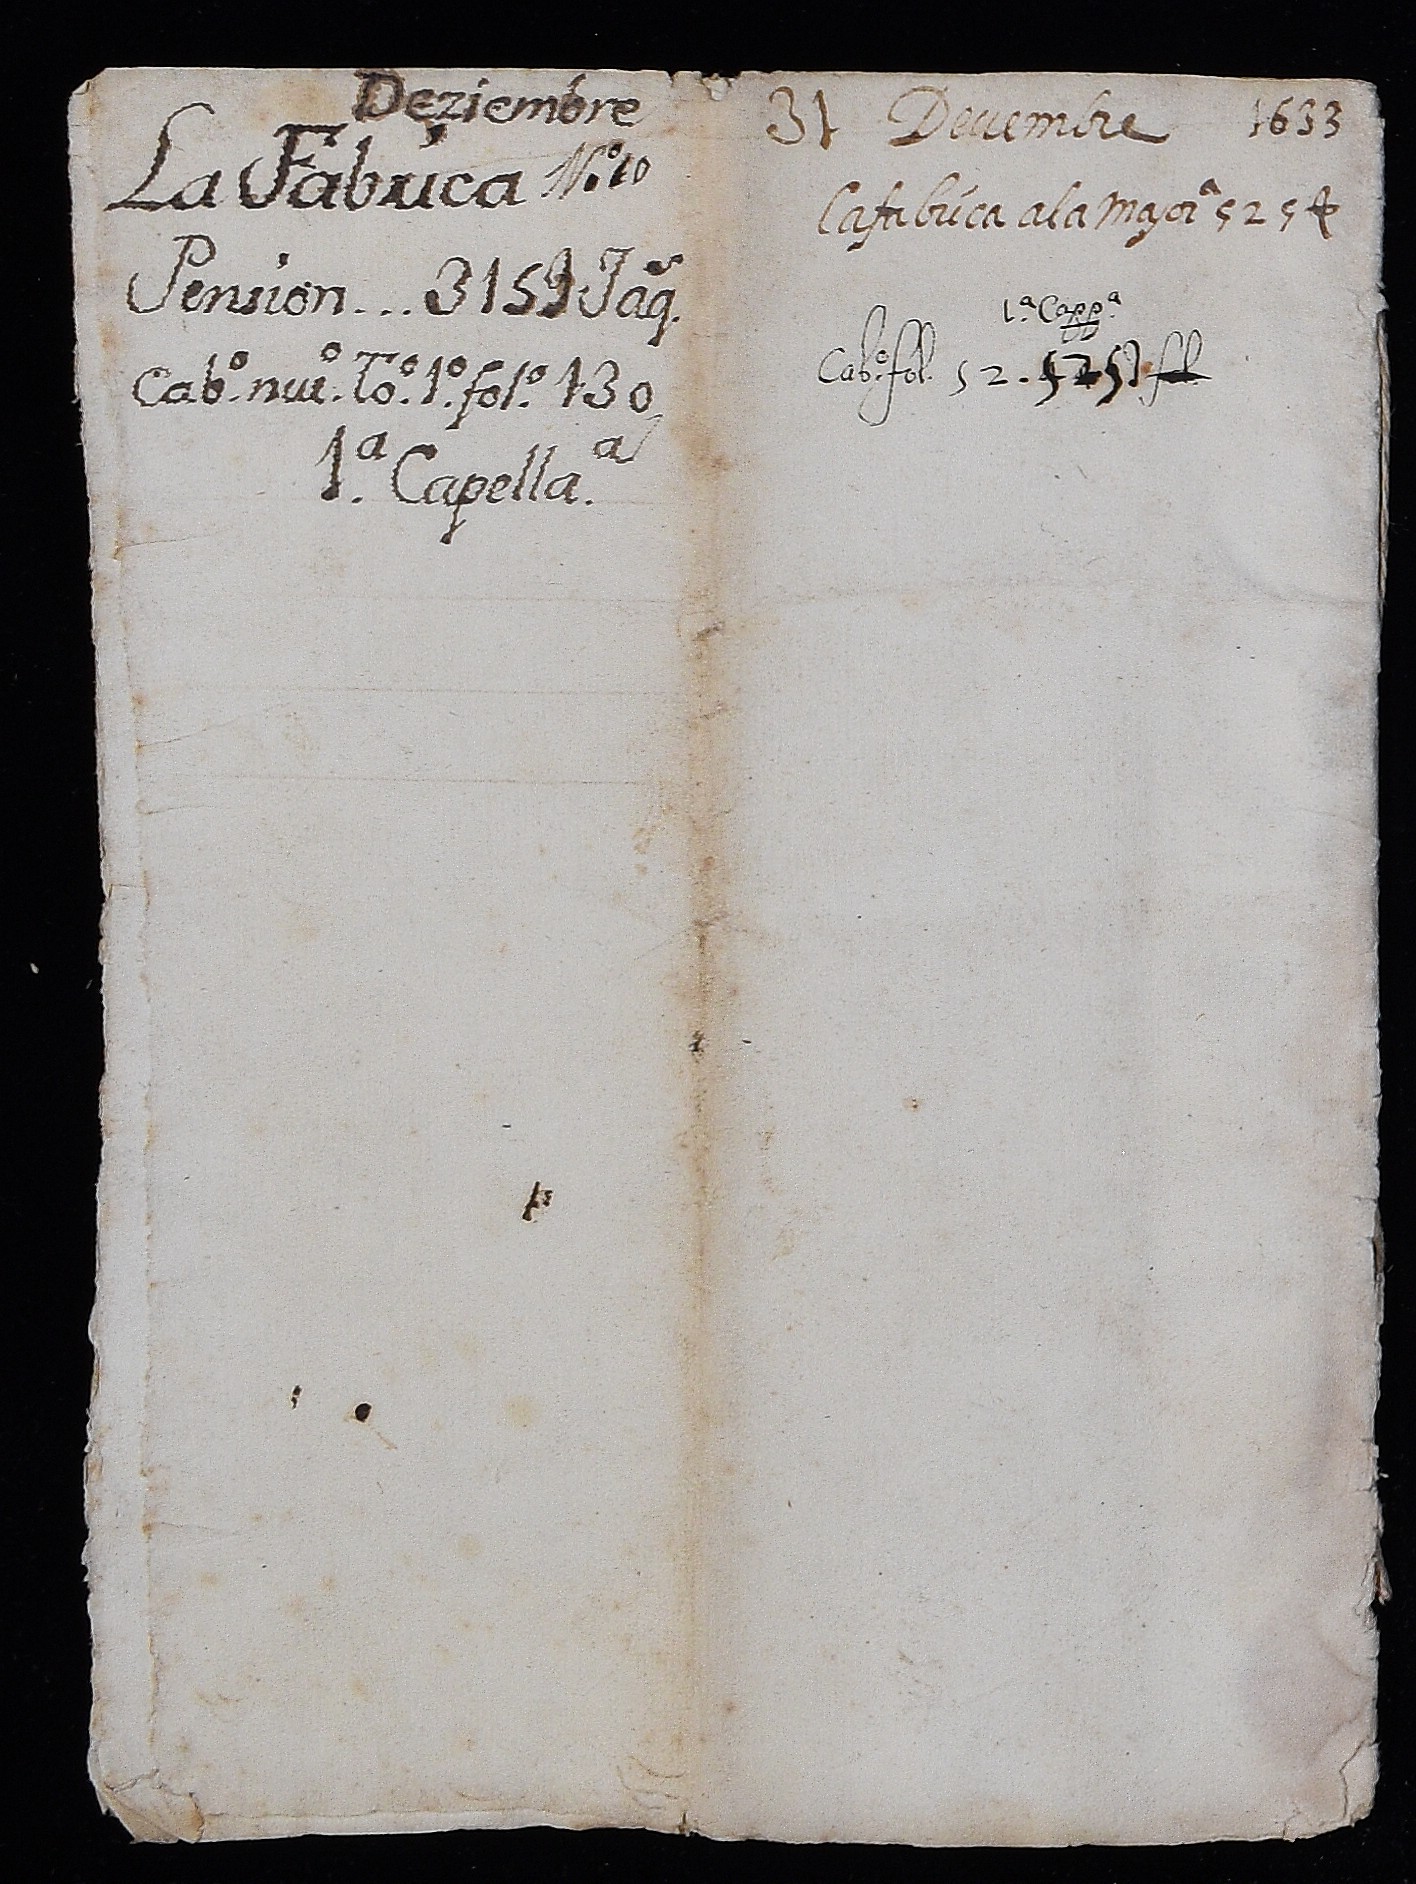 Deziembre
La Fabrica N.º 10
Pension... 315 Jaq.s
Cab.º nue.º To.º 1.º fol.º 130
1.ª Capella.ª
31 Deciembre 1633
La fabrica a la Mayor.ª 525
1.ª Capp.ª
Cab.º fol. 52. 525